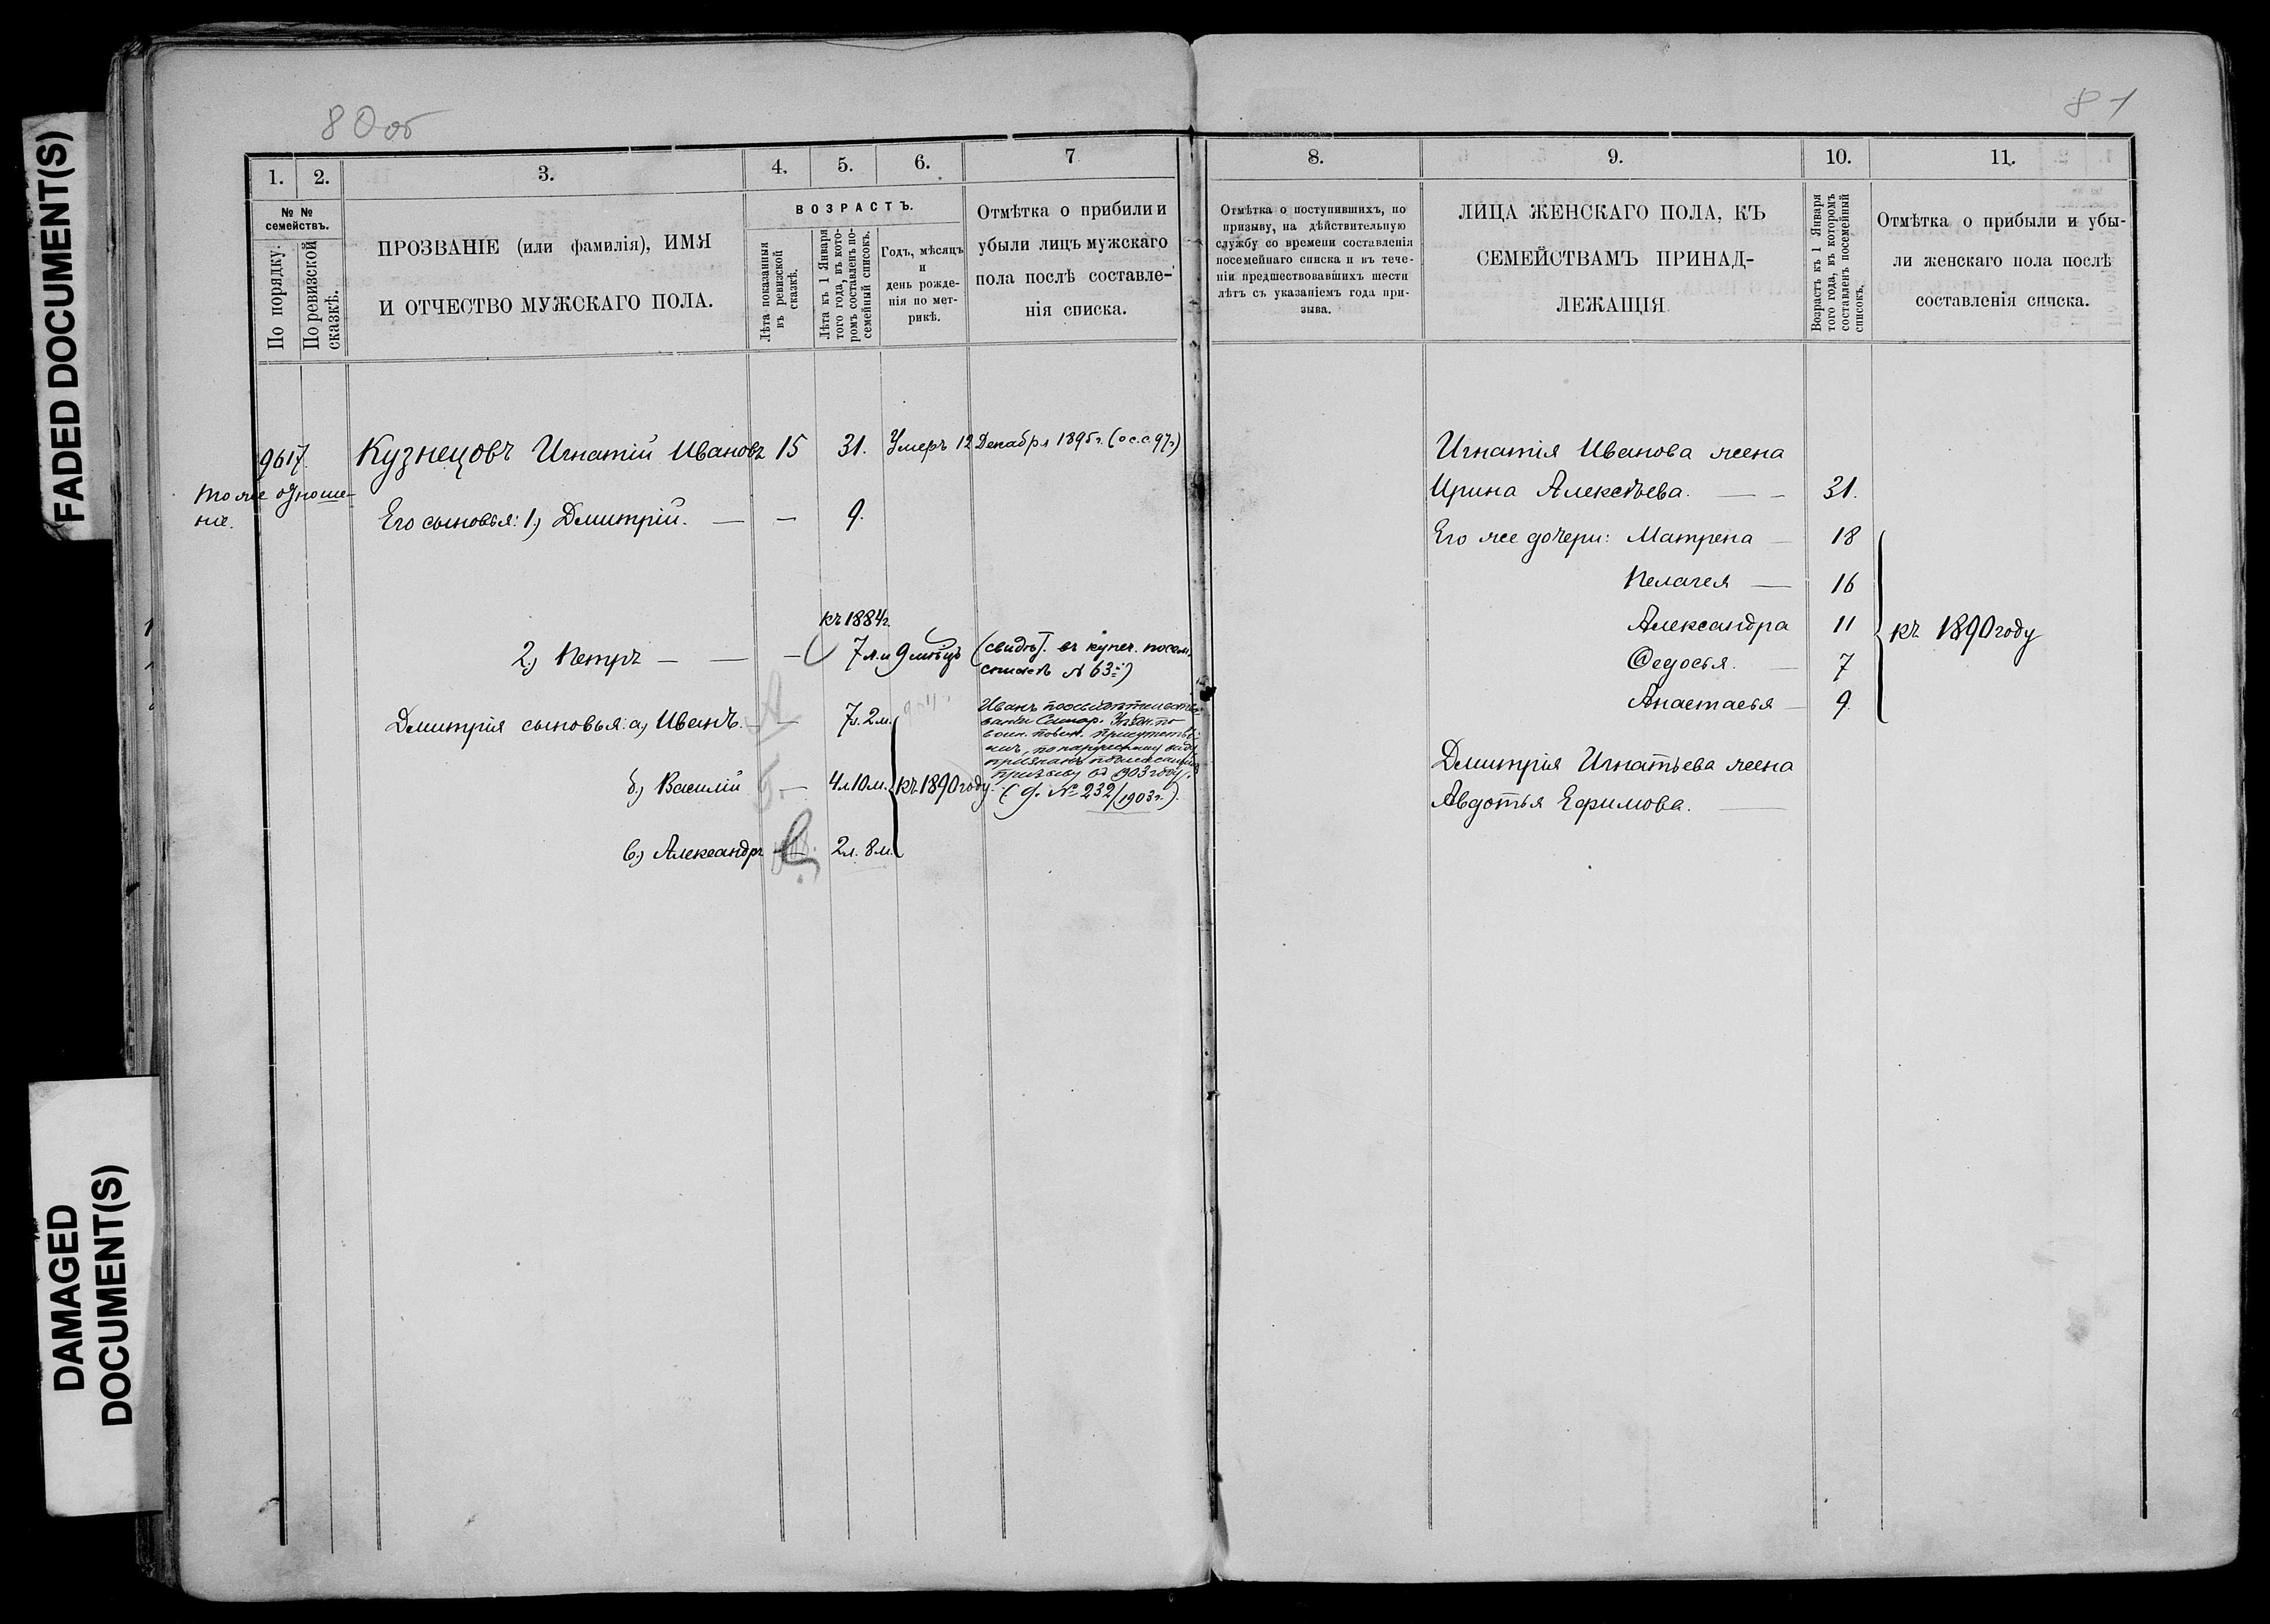 FADED DOCUMENT(S)
DAMAGED
DOCUMENT(S)
80 об
1.
2.
3.
4.
5.
6.
7
№ №
семействъ.
По порядку.
По ревизской
сказкѣ.
ПРОЗВАНІЕ (или фамилія), ИМЯ
И ОТЧЕСТВО МУЖСКАГО ПОЛА.
ВОЗРАСТЪ.
Лѣта показанныя
въ ревизской
сказкѣ.
Лѣта къ 1 Января
того года, въ кото-
ромъ составленъ по-
семейный списокъ.
Годъ, мѣсяцъ
и
день рожде-
нія по мет-
рикѣ.
Отмѣтка о прибыли и
убыли лицъ мужскаго
пола послѣ составле-
нія списка.
9617. Кузнецовъ Игнатій Ивановъ 15 31. Умеръ 12 Декабря 1895 г. (о с.с. 97 г)
тоже отноше-
ніе.
Его сыновья: 1) Дмитрій. — — 9.
къ 1884 г.
2) Петръ — — — 7 л. и 9 мѣсцъ (свидѣт. въ купеч. посем.
спискѣ № 63й)
Дмитрія сыновья: а) Иванъ. — — 7 л. 2 м.
Иванъ
Самар. по
воин. повин.
по наружному виду
призыву въ 1903 году.
(д. № 232/1903 г.).
б) Василій — 4 л. 10 м. къ 1890 году.
в) Александръ — 2 л. 8 м.
81
8.
9.
10.
11.
Отмѣтка о поступившихъ, по
призыву, на дѣйствительную
службу со времени составленія
посемейнаго списка и въ тече-
ніи предшествовавшихъ шести
лѣтъ съ указаніемъ года при-
зыва.
ЛИЦА ЖЕНСКАГО ПОЛА, КЪ
СЕМЕЙСТВАМЪ ПРИНАД-
ЛЕЖАЩІЯ
Возрастъ къ 1 Января
того года, въ которомъ
составленъ посемейный
списокъ.
Отмѣтка о прибыли и убы-
ли женскаго пола послѣ
составленія списка.
Игнатія Иванова жена
Ирина Алексѣева. — — 31.
Его же дочери: Матрена — 18
Пелагея — 16
Александра 11
къ 1890 году
Ѳедосья. — 7
Анастасья — 9.
Дмитрія Игнатьева жена
Авдотья Ефимова. —